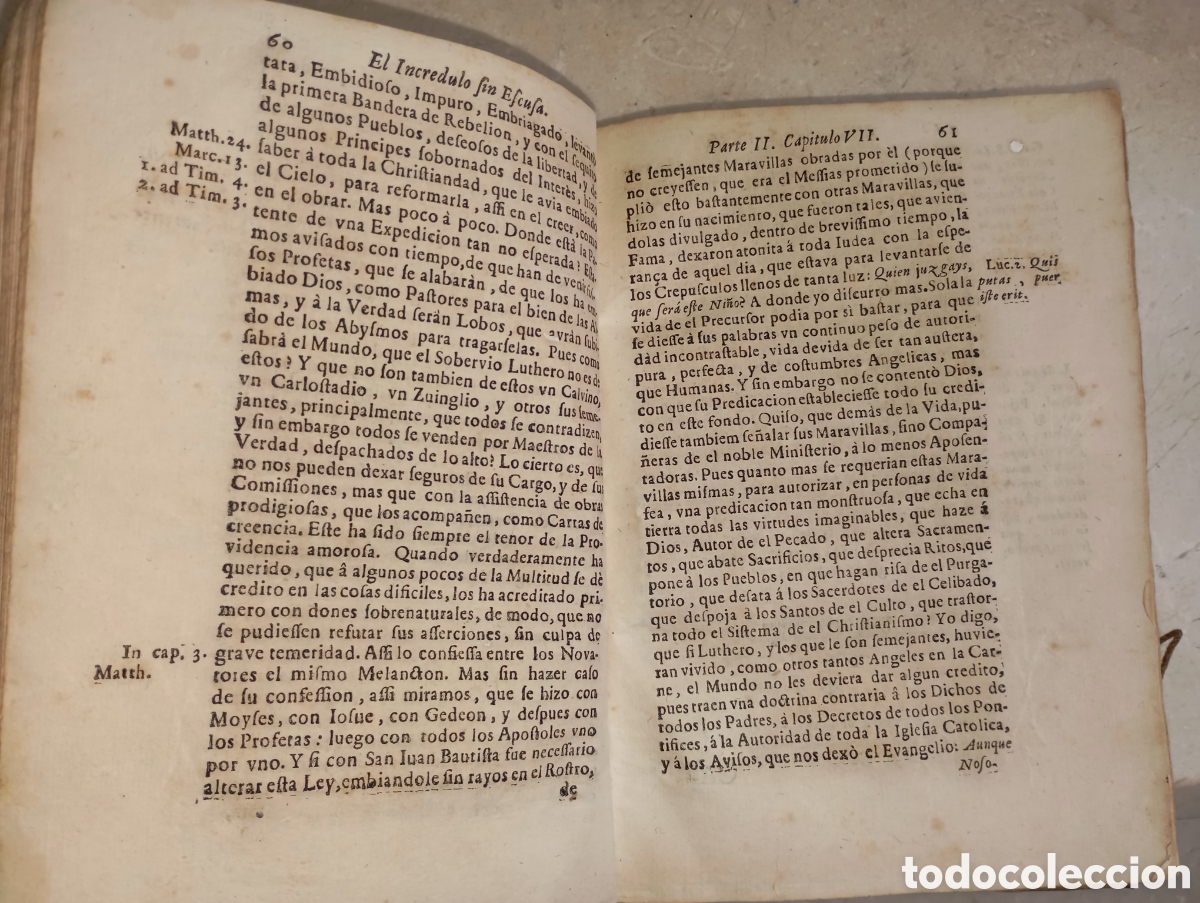 60
El Incredulo sin Escusa.
tata, Embidioso, Impuro, Embriagado, levantò
la primera Bandera de Rebelion, y con el sequito
de algunos Pueblos, deseosos de la libertad, y de
algunos Principes sobornados del Interès, hizo
Matth. 24. saber à toda la Christiandad, que le avia embiado
Marc. 13. el Cielo, para reformarla, assi en el creer, como
1. ad Tim. 4. en el obrar. Mas poco à poco. Donde està la Pa-
2. ad Tim. 3. tente de vna Expedicion tan no esperada? Esta-
mos avisados con tiempo, de que han de venir
sos Profetas, que se alabaràn, de que los ha em-
biado Dios, como Pastores para el bien de las Al-
mas, y à la Verdad seràn Lobos, que avràn subi-
do de los Abysmos para tragarselas. Pues como
sabrà el Mundo, que el Sobervio Luthero no es de
estos? Y que no son tambien de estos vn Calvino,
vn Carlostadio, vn Zuinglio, y otros sus seme-
jantes, principalmente, que todos se contradizen,
y sin embargo todos se venden por Maestros de la
Verdad, despachados de lo alto? Lo cierto es, que
no nos pueden dexar seguros de su Cargo, y de sus
Comissiones, mas que con la assistencia de obras
prodigiosas, que los acompañen, como Cartas de
creencia. Este ha sido siempre el tenor de la Pro-
videncia amorosa. Quando verdaderamente ha
querido, que â algunos pocos de la Multitud se dè
credito en las cosas dificiles, los ha acreditado pri-
mero con dones sobrenaturales, de modo, que no
se pudiessen refutar sus asserciones, sin culpa de
In cap. 3. grave temeridad. Assi lo confiessa entre los Nova-
Matth. tores el mismo Melancton. Mas sin hazer caso
de su confession, assi miramos, que se hizo con
Moyses, con Iosue, con Gedeon, y despues con
los Profetas: luego con todos los Apostoles vno
por vno. Y si con San Juan Bautista fue necessario
alterar esta Ley, embiandole sin rayos en el Rostro,
de
Parte II. Capitulo VII. 61
de semejantes Maravillas obradas por èl (porque
no creyessen, que era el Messias prometido) le su-
pliò esto bastantemente con otras Maravillas, que
hizo en su nacimiento, que fueron tales, que avien-
dolas divulgado, dentro de brevissimo tiempo, la
Fama, dexaron atonita á toda Iudea con la espe-
rança de aquel dia, que estava para levantarse de
los Crepusculos llenos de tanta luz: Quien juzgays, Luc. 1. Quis
que serà este Niño? A donde yo discurro mas. Sola la putas, puer
vida de el Precursor podia por si bastar, para que iste erit.
se diesse à sus palabras vn continuo peso de autori-
dàd incontrastable, vida devida de ser tan austera,
pura, perfecta, y de costumbres Angelicas, mas
que Humanas. Y sin embargo no se contentò Dios,
con que su Predicacion estableciesse todo su credi-
to en este fondo. Quiso, que demàs de la Vida, pu-
diesse tambiem señalar sus Maravillas, sino Compa-
ñeras de el noble Ministerio, à lo menos Aposen-
tadoras. Pues quanto mas se requerian estas Mara-
villas mismas, para autorizar, en personas de vida
fea, vna predicacion tan monstruosa, que echa en
tierra todas las virtudes imaginables, que haze á
Dios, Autor de el Pecado, que altera Sacramen-
tos, que abate Sacrificios, que desprecia Ritos, que
pone à los Pueblos, en que hagan risa de el Purga-
torio, que desata á los Sacerdotes de el Celibado,
que despoja à los Santos de el Culto, que trastor-
na todo el Sistema de el Christianismo? Yo digo,
que si Luthero, y los que le son semejantes, huvie-
ran vivido, como otros tantos Angeles en la Car-
ne, el Mundo no les deviera dar algun credito,
pues traen vna doctrina contraria â los Dichos de
todos los Padres, à los Decretos de todos los Pon-
tifices, á la Autoridad de toda la Iglesia Catolica,
y á los Avisos, que nos dexò el Evangelio: Aunque
Noso-
todocoleccion